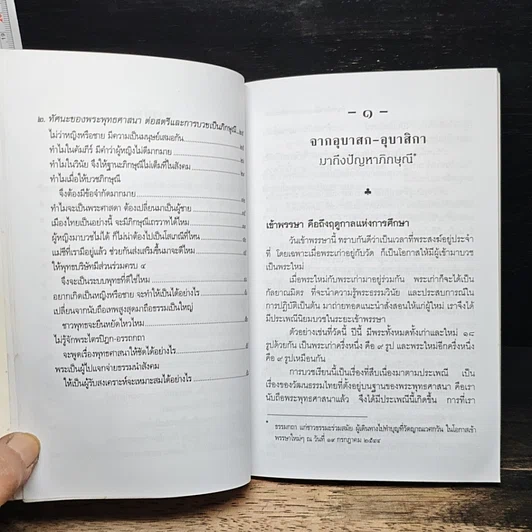 ๒. ทัศนะของพระพุทธศาสนา ต่อสตรีและการบวชเป็นภิกษุณี
ไม่ว่าหญิงหรือชาย มีความเป็นมนุษย์เสมอกัน
ทำไมในคัมภีร์ มีคำว่าผู้หญิงไม่ดีมากมาย
ทำไมในวินัย จึงให้ฐานะภิกษุณีไม่เต็มที่ในสังคม
ทำไมเมื่อให้บวชภิกษุณี
จึงต้องมีข้อจำกัดมากมาย
ทำไมจะเป็นพระศาสดา ต้องเปลี่ยนมาเป็นผู้ชาย
เมืองไทยเป็นอย่างนี้ จะมีภิกษุณีเถรวาทได้ไหม
ผู้หญิงมาบวชไม่ได้ ก็ไม่น่าต้องไปเป็นโสเภณีที่ไหน
แม่ชีที่เรามีอยู่แล้ว ช่วยกันส่งเสริมขึ้นมาจะดีไหม
ให้พุทธบริษัทมีส่วนร่วมครบ ๔
จึงจะเป็นระบบพุทธที่ดีใช่ไหม
อยากเกิดเป็นหญิงหรือชาย จะทำให้เป็นได้อย่างไร
เปลี่ยนจากนับถือเทพสูงสุดมาถือธรรมเป็นใหญ่
ชาวพุทธจะยืนหยัดไหวไหม
ไม่รู้จักพระไตรปิฎก-อรรถกถา
จะพูดเรื่องพระพุทธศาสนาให้ชัดได้อย่างไร
พระเป็นผู้ไปแจกจ่ายธรรมนำสังคม
ให้เป็นผู้รับสงเคราะห์จะเหมาะสมได้อย่างไร
– ๑ –
จากอุบาสก-อุบาสิกา
มาถึงปัญหาภิกษุณี*
เข้าพรรษา คือถึงฤดูกาลแห่งการศึกษา
วันเข้าพรรษานี้ ทราบกันดีว่าเป็นเวลาที่พระสงฆ์อยู่ประจำ
ที่ โดยเฉพาะเมื่อพระเก่าอยู่กับวัด ก็เป็นโอกาสให้มีผู้เข้ามาบวช
เป็นพระใหม่
เมื่อพระใหม่กับพระเก่ามาอยู่ร่วมกัน พระเก่าก็จะได้เป็น
กัลยาณมิตร ที่จะนำความรู้พระธรรมวินัย และประสบการณ์ใน
การปฏิบัติเป็นต้น มาถ่ายทอดแนะนำสั่งสอนให้แก่ผู้ใหม่ เราจึงได้
มีประเพณีนิยมบวชในระยะเข้าพรรษา
ตัวอย่างเช่นที่วัดนี้ ปีนี้ มีพระทั้งหมดทั้งเก่าและใหม่ ๑๘
รูปด้วยกัน เป็นพระเก่าครึ่งหนึ่ง คือ ๙ รูป และพระใหม่อีกครึ่งหนึ่ง
คือ ๙ รูปเหมือนกัน
การบวชเรียนนี้เป็นเรื่องที่สืบเนื่องมาตามประเพณี เป็น
เรื่องของวัฒนธรรมไทยที่ตั้งอยู่บนฐานของพระพุทธศาสนา คือเรา
นับถือพระพุทธศาสนาแล้ว จึงได้มีประเพณีนี้เกิดขึ้น การที่เรา
* ธรรมกถา แก่ชาวธรรมะร่วมสมัย ผู้เดินทางไปทำบุญที่วัดญาณเวศกวัน ในโอกาสเข้า
พรรษาใหม่ๆ ณ วันที่ ๑๙ กรกฎาคม ๒๕๔๔